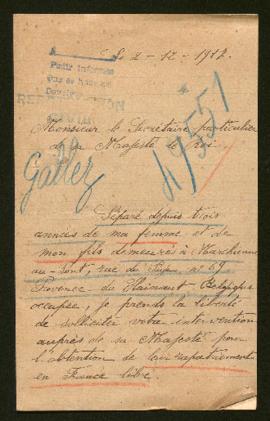 2-12-1917
Petit Informé
Gallez
4551
Monsieur le Secrétaire particulier
de sa Majesté le roi.
Séparé depuis trois
années de ma femme et de
mon fils demeurés à Marchienne
au-Pont, rue du n° 69
Province de Hainaut Belgique
occupée, je prends la liberté
de solliciter votre intervention
auprès de sa Majesté pour
l'obtention de leur rapatriement
en France libre.